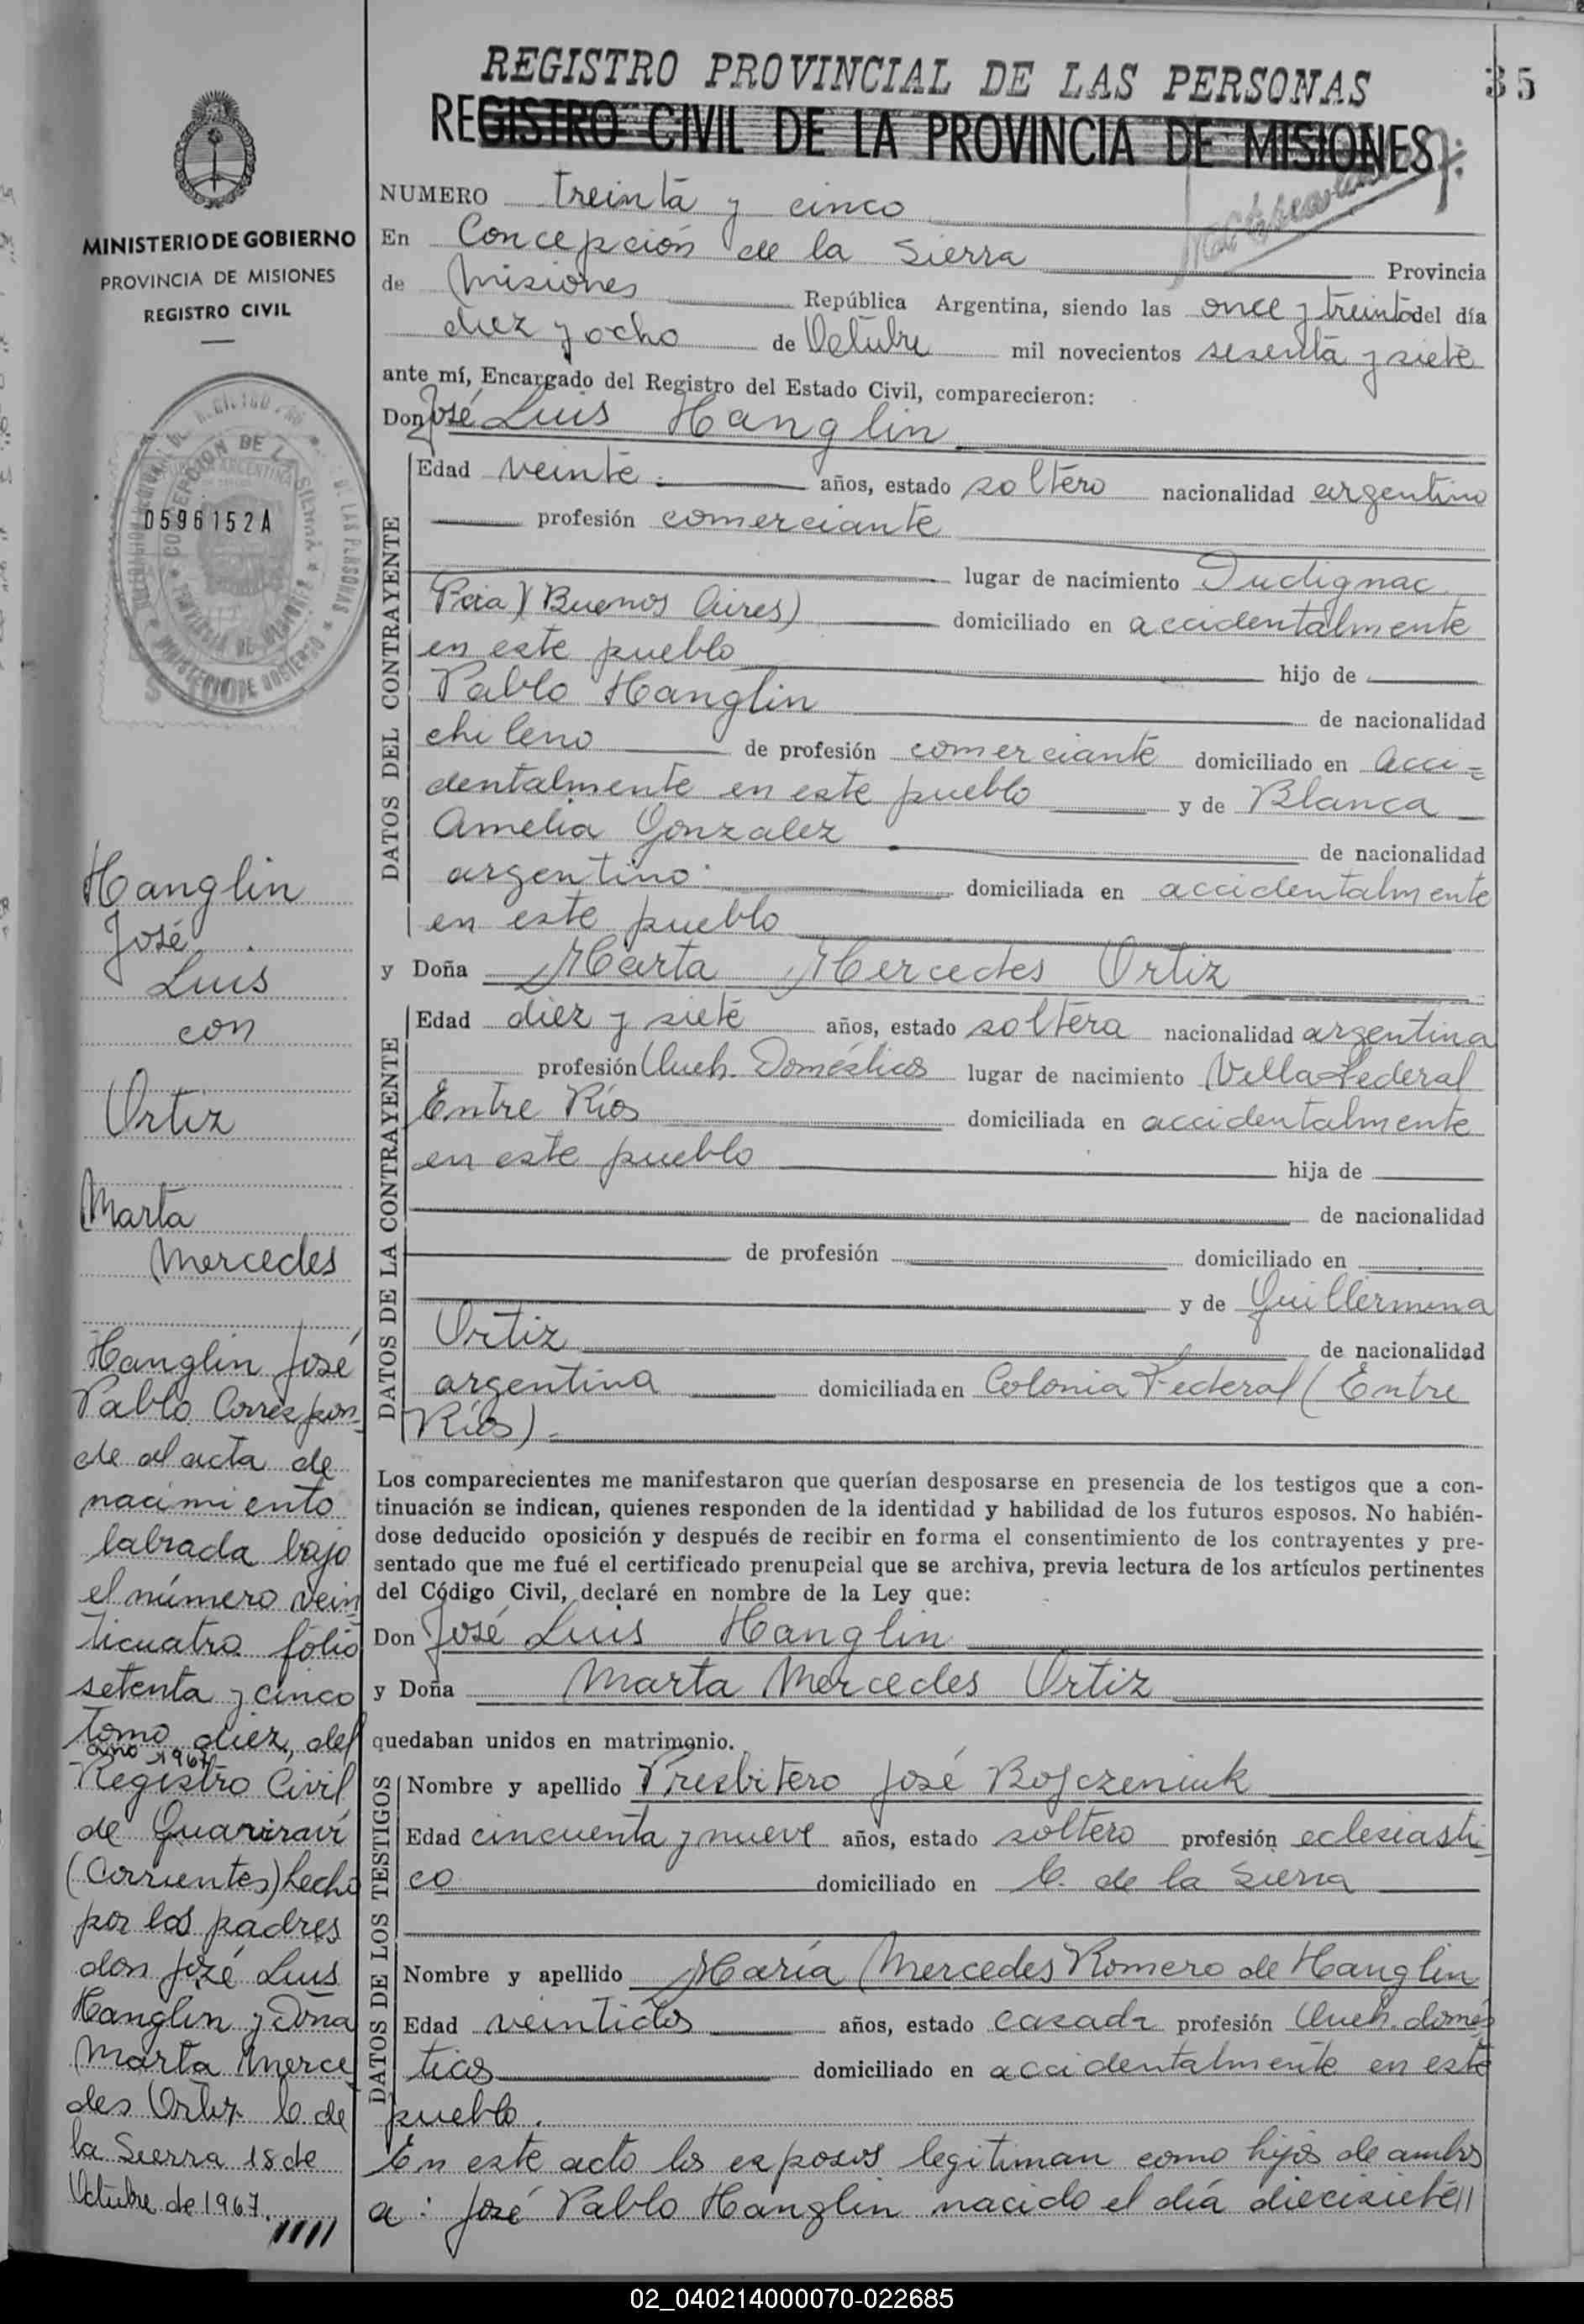 REGISTRO PROVINCIAL DE LAS PERSONAS
35
REGISTRO CIVIL DE LA PROVINCIA DE MISIONES
MINISTERIO DE GOBIERNO
PROVINCIA DE MISIONES
REGISTRO CIVIL
0596152A
NUMERO treinta y cinco
En Concepción de la Sierra Provincia
de Misiones República Argentina, siendo las once y treinta del día
diez y ocho de Octubre mil novecientos sesenta y siete
ante mí, Encargado del Registro del Estado Civil, comparecieron:
Don José Luis Hanglin
DATOS DEL CONTRAYENTE
Edad veinte años, estado soltero nacionalidad argentino
profesión comerciante
lugar de nacimiento Dudignac
Pcia) (Buenos Aires) domiciliado en accidentalmente
en este pueblo hijo de
Pablo Hanglin de nacionalidad
chileno de profesión comerciante domiciliado en acci=
dentalmente en este pueblo y de Blanca
Amelia Gonzalez de nacionalidad
argentino domiciliada en accidentalmente
en este pueblo
y Doña Marta Mercedes Ortiz
DATOS DE LA CONTRAYENTE
Edad diez y siete años, estado soltera nacionalidad argentina
profesión Queh. Domésticos lugar de nacimiento Villa Federal
Entre Ríos domiciliada en accidentalmente
en este pueblo hija de
de nacionalidad
de profesión domiciliado en
y de Guillermina
Ortiz de nacionalidad
argentina domiciliada en Colonia Federal (Entre
Ríos).
Los comparecientes me manifestaron que querían desposarse en presencia de los testigos que a con-
tinuación se indican, quienes responden de la identidad y habilidad de los futuros esposos. No habién-
dose deducido oposición y después de recibir en forma el consentimiento de los contrayentes y pre-
sentado que me fué el certificado prenupcial que se archiva, previa lectura de los artículos pertinentes
del Código Civil, declaré en nombre de la Ley que:
Don José Luis Hanglin
y Doña Marta Mercedes Ortiz
quedaban unidos en matrimonio.
DATOS DE LOS TESTIGOS
Nombre y apellido Presbitero José Bojczeniuk
Edad cincuenta y nueve años, estado soltero profesión eclesiasti-
co domiciliado en C. de la Sierra
Nombre y apellido María Mercedes Romero de Hanglin
Edad veintidos años, estado casada profesión Queh. domés
ticos domiciliado en accidentalmente en este
pueblo.
En este acto los esposos legitiman como hijos de ambos
a: José Pablo Hanglin nacido el día diecisiete//
Hanglin
José
Luis
con
Ortiz
Marta
Mercedes
Hanglin José
Pablo Correspon-
de al acta de
nacimiento
labrada bajo
el número vein
ticuatro folio
setenta y cinco
tomo diez, del
año 1967
Registro Civil
de Guaviraví
(Corrientes) hecho
por los padres
don José Luis
Hanglin y Doña
Marta Merce
des Ortiz C. de
la Sierra 18 de
Octubre de 1967.
02_040214000070-022685